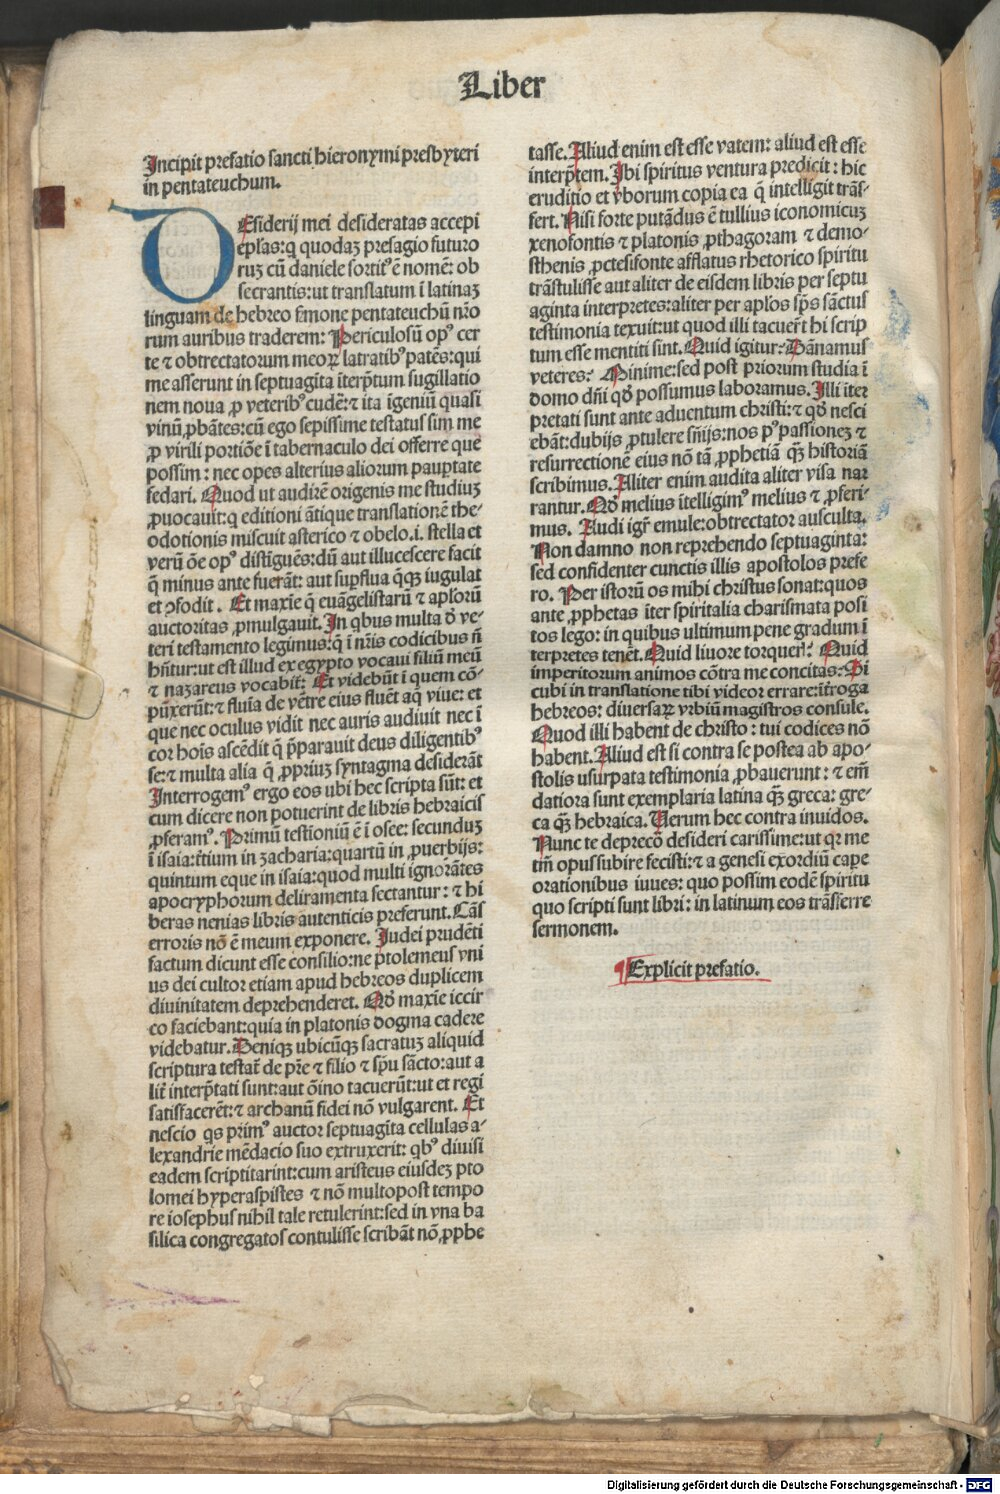 Liber
Incipit prefatio sancti hieronymi presbyteri
in pentateuchum.
DEsiderij mei desideratas accepi
epl̄as: q̄ quodaʒ presagio futuro
ruʒ cū daniele sortitꝰ ē nomē: ob
secrantis: ut translatum ī latinaʒ
linguam de hebreo s̄mone pentateuchū nr̄o
rum auribus traderem: Periculosū opꝰ cer
te ⁊ obtrectatorum meoꝝ latratibꝰ patēs: qui
me asserunt in septuagīta īterp̄tum sugillatio
nem noua ꝓ veteribꝰ cudē: ⁊ ita īgeniū quasi
vinū ꝓbātes: cū ego sepissime testatus sim me
ꝓ virili portiōe ī tabernaculo dei offerre que
possim: nec opes alterius aliorum paup̄tate
fedari. Quod ut audirē origenis me studiuʒ
ꝓuocauit: q̄ editioni ātique translationē the-
odotionis miscuit asterico ⁊ obelo .i. stella et
verū ōe opꝰ distīguēs: dū aut illucescere facit
q̄ minus ante fuerāt: aut sup̄flua q̄qʒ iugulat
et ↄfodit. Et maxīe q̄ euāgelistarū ⁊ apl̄orū
auctoritas ꝓmulgauit. In qbus multa ō ve-
teri testamento legimus: q̄ ī nr̄is codicibus n̄
hn̄tur: ut est illud ex egypto vocaui filiū meū
⁊ nazareus vocabit̄: Et videbūt ī quem cō-
pūxerūt: ⁊ fluīa de vētre eius fluēt aq̄ viue: et
que nec oculus vidit nec auris audiuit nec ī
cor hoīs ascēdit q̄ p̄parauit deus diligentibꝰ
se: ⁊ multa alia q̄ ꝓpriuʒ syntagma desiderāt
Interrogemꝰ ergo eos ubi hec scripta sūt: et
cum dicere non potuerint de libris hebraicis
ꝓferamꝰ. Primū testīoniū ē ī osee: secunduʒ
ī isaia: t̄tium in zacharia: quartū in ꝓuerbijs:
quintum eque in isaia: quod multi ignorātes
apocryphorum deliramenta sectantur: ⁊ hi
beras nenias libris autenticis preferunt. Cās̄
erroris nō ē meum exponere. Iudei prudēti
factum dicunt esse consilio: ne ptolemeus vni
us dei cultor etiam apud hebreos duplicem
diuinitatem deprehenderet. Qđ maxīe iccir
co faciebant: quia in platonis dogma cadere
videbatur. Deniqʒ ubicūqʒ sacratuʒ aliquid
scriptura testat̄ de pr̄e ⁊ filio ⁊ sp̄u sācto: aut a
lit̄ interp̄tati sunt: aut ōino tacuerūt: ut et regi
satisfacerēt: ⁊ archanū fidei nō vulgarent. Et
nescio qs primꝰ auctor septuagīta cellulas a-
lexandrie mēdacio suo extruxerit: qbꝰ diuisi
eadem scriptitarint: cum aristeus eiusdeʒ pto
lomei hyperaspistes ⁊ nō multopost tempo
re iosephus nihil tale retulerint: sed in vna ba
silica congregatos contulisse scribāt nō ꝓphe
tasse. Aliud enim est esse vatem: aliud est esse
interp̄tem. Ibi spiritus ventura predicit: hic
eruditio et v̄borum copia ea q̄ intelligit trās-
fert. Nisi forte putādus ē tullius iconomicuʒ
xenofontis ⁊ platonis ꝓthagoram ⁊ demo-
sthenis ꝓctesifonte afflatus rhetorico spiritu
trāstulisse aut aliter de eisdem libris per septu
aginta interpretes: aliter per apl̄os sp̄s sāctus
testimonia texuit: ut quod illi tacuer̄t hi scrip
tum esse mentiti sint. Quid igitur: Dānamus
veteres: Minime: sed post priorum studia ī
domo dn̄i qđ possumus laboramus. Illi īter
pretati sunt ante aduentum christi: ⁊ qđ nesci
ebāt: dubijs ꝓtulere sn̄ijs: nos pꝰ passioneʒ ⁊
resurrectionē eius nō tā ꝓphetiā qʒ historiā
scribimus. Aliter enim audita aliter visa nar
rantur. Qđ melius ītelligimꝰ melius ⁊ ꝓferi-
mus. Audi igr̄ emule: obtrectator ausculta.
Non damno non reprehendo septuaginta:
sed confidenter cunctis illis apostolos prefe
ro. Per istorū os mihi christus sonat: quos
ante ꝓphetas īter spiritalia charismata posi
tos lego: in quibus ultimum pene gradum ī
terpretes tenēt. Quid liuore torqueris̄: Quid
imperitorum animos cōtra me concitas: Si
cubi in translatione tibi videor errare: īt̄roga
hebreos: diuersaꝝ vrbiū magistros consule.
Quod illi habent de christo: tui codices nō
habent. Aliud est si contra se postea ab apo-
stolis usurpata testimonia ꝓbauerunt: ⁊ em̄
datiora sunt exemplaria latina qʒ greca: gre-
ca qʒ hebraica. Verum hec contra inuidos.
Nunc te deprecor̄ desideri carissime: ut qr me
tm̄ opus subire fecisti: ⁊ a genesi exordiū cape
orationibus iuues: quo possim eodē spiritu
quo scripti sunt libri: in latinum eos trāsferre
sermonem.
Explicit prefatio.
Digitalisierung gefördert durch die Deutsche Forschungsgemeinschaft - DFG